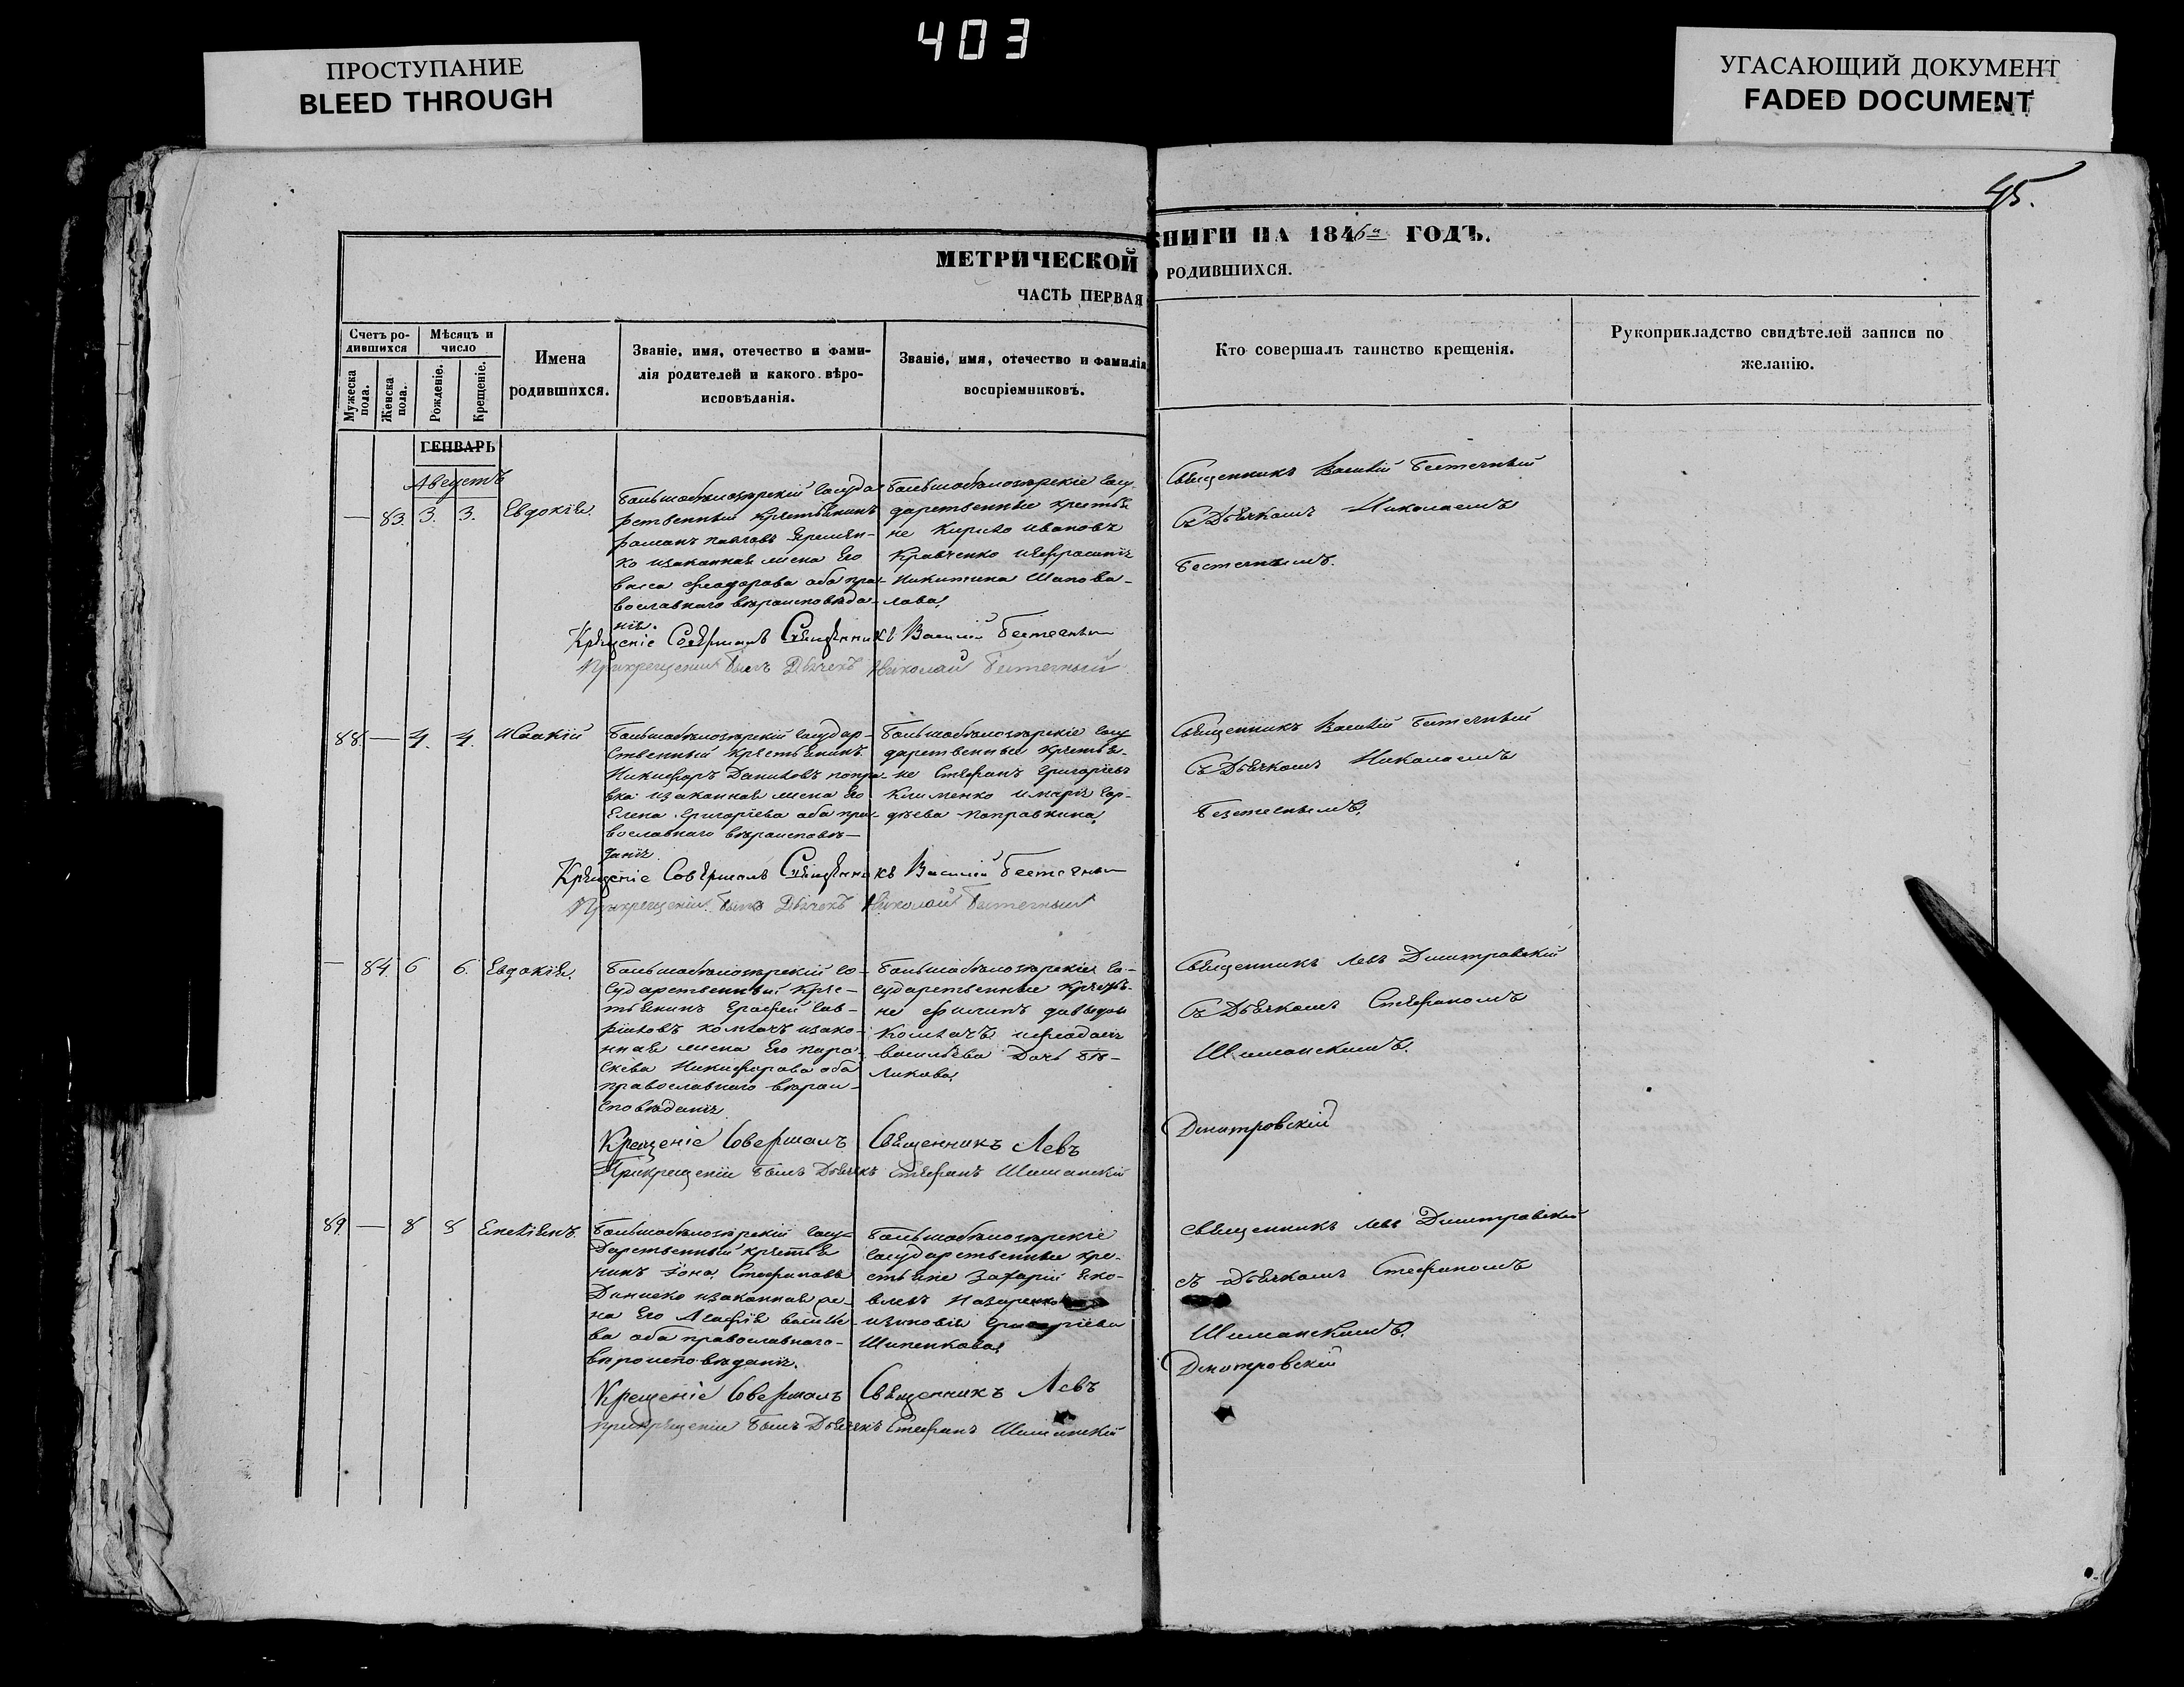 403
ПРОСТУПАНИЕ
BLEED THROUGH
УГАСАЮЩИЙ ДОКУМЕНТ
FADED DOCUMENT
45.
МЕТРИЧЕСКОЙ КНИГИ НА 1846й ГОДЪ.
ЧАСТЬ ПЕРВАЯ О РОДИВШИХСЯ.
Счетъ ро-
дившихся
Мужеска пола.
Женска пола.
Мѣсяцъ и
число
Рожденіе.
Крещеніе.
Имена
родившихся.
Званіе, имя, отечество и фами-
лія родителей и какого вѣро-
исповѣданія.
Званіе, имя, отечество и фамилія
воспріемниковъ.
Кто совершалъ таинство крещенія.
Рукоприкладство свидѣтелей записи по
желанію.
ГЕНВАРЬ
Августъ
— 83. 3. 3. Евдокія.
Большобѣлозѣрскій госуда
рственный крестьянинъ
романъ павловъ Еремен-
ко изаконная жена Его
васа феодорова оба пра-
вославнаго вѣроисповѣда-
нія.
Большобѣлозѣрскіе госу-
дарственные крестья
не Кирило ивановъ
Кравченко иЕфросинія
Никитина Шапова-
лова,
Священникъ Василій Бестечный
СъДьячкомъ Николаемъ
Бестечнымъ.
Крещеніе Совершалъ Священникъ Василій Бестечный
Прикрещеніи былъ Дьячекъ Николай Бестечный
88 — 4. 4. Исаакій
Большобѣлозѣрскій государ-
ственный крестьянинъ
Никифоръ Даниловъ попра-
вка изаконная жена Его
Елена Григоріева оба пра-
вославнаго вѣроисповѣ-
данія
Большобѣлозѣрскіе госу
дарственные крестья-
не Стефанъ Григоріевъ
Клименко имарія гор-
дѣева Поправкина,
Священникъ Василій Бестечный
СъДьячкомъ Николаемъ
Безтечнымъ.
Крещеніе Совершалъ Священникъ Василій Бестечный
Прикрещеніи былъ Дьячекъ Николай Бестечный
— 84. 6 6. Евдокія.
Большобѣлозѣрскій го-
сударственный кре-
стьянинъ Ерофей гав-
риловъ изако-
нная жена Его пара-
скева Никифорова оба
православнаго вѣрои-
сповѣданія
Большобѣлозѣрскіе го-
сударственные крестья-
не филипъ давыдовъ
ифеодосія
васильева Дочь Бѣ-
ликова,
Священникъ Левъ Димитровскій
СъДьячкомъ Стефаномъ
Шиманскимъ.
Крещеніе Совершалъ Священникъ Левъ Дмитровскій
Прикрещеніи былъ Дьячекъ Стефанъ Шиманскій
89. — 8 8
Большобѣлозѣрскій госу-
дарственный крестья
нинъ Стефановъ
изаконная же-
на Его Агафія василіе
ва оба православнаго-
вѣроисповѣданія.
Большобѣлозѣрскіе
государственные кре-
стьяне Захарій яко-
влевъ Назаренко
изиновія Григоріева
Шипенкова,
священникъ левъ Димитровскій
съ Дьячкомъ Стефаномъ
Шиманскимъ.
Крещеніе Совершалъ Священникъ Левъ Дмитровскій
прикрещеніи былъ Дьячекъ Стефанъ Шиманскій